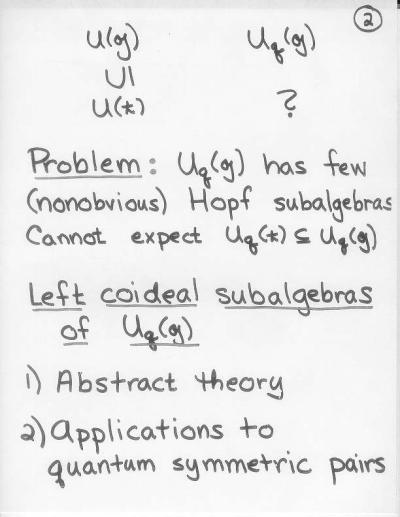 2
U(g) U_q(g)
UI
U(*) ?
Problem: U_q(g) has few
(nonobvious) Hopf subalgebras
Cannot expect U_q(*) ⊆ U_q(g)
Left coideal subalgebras
of U_q(g)
1) Abstract theory
2) Applications to
quantum symmetric pairs